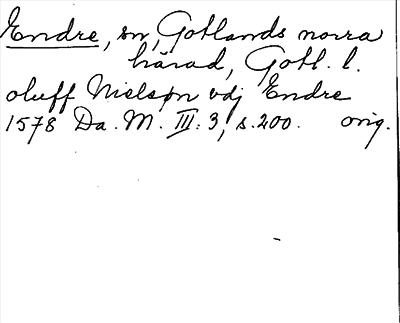 Endre, sn, Gotlands norra
härad, Gotl. l.
oluff Nielsøn vdj Endre
1578 Da. M. III: 3, s. 200. orig.